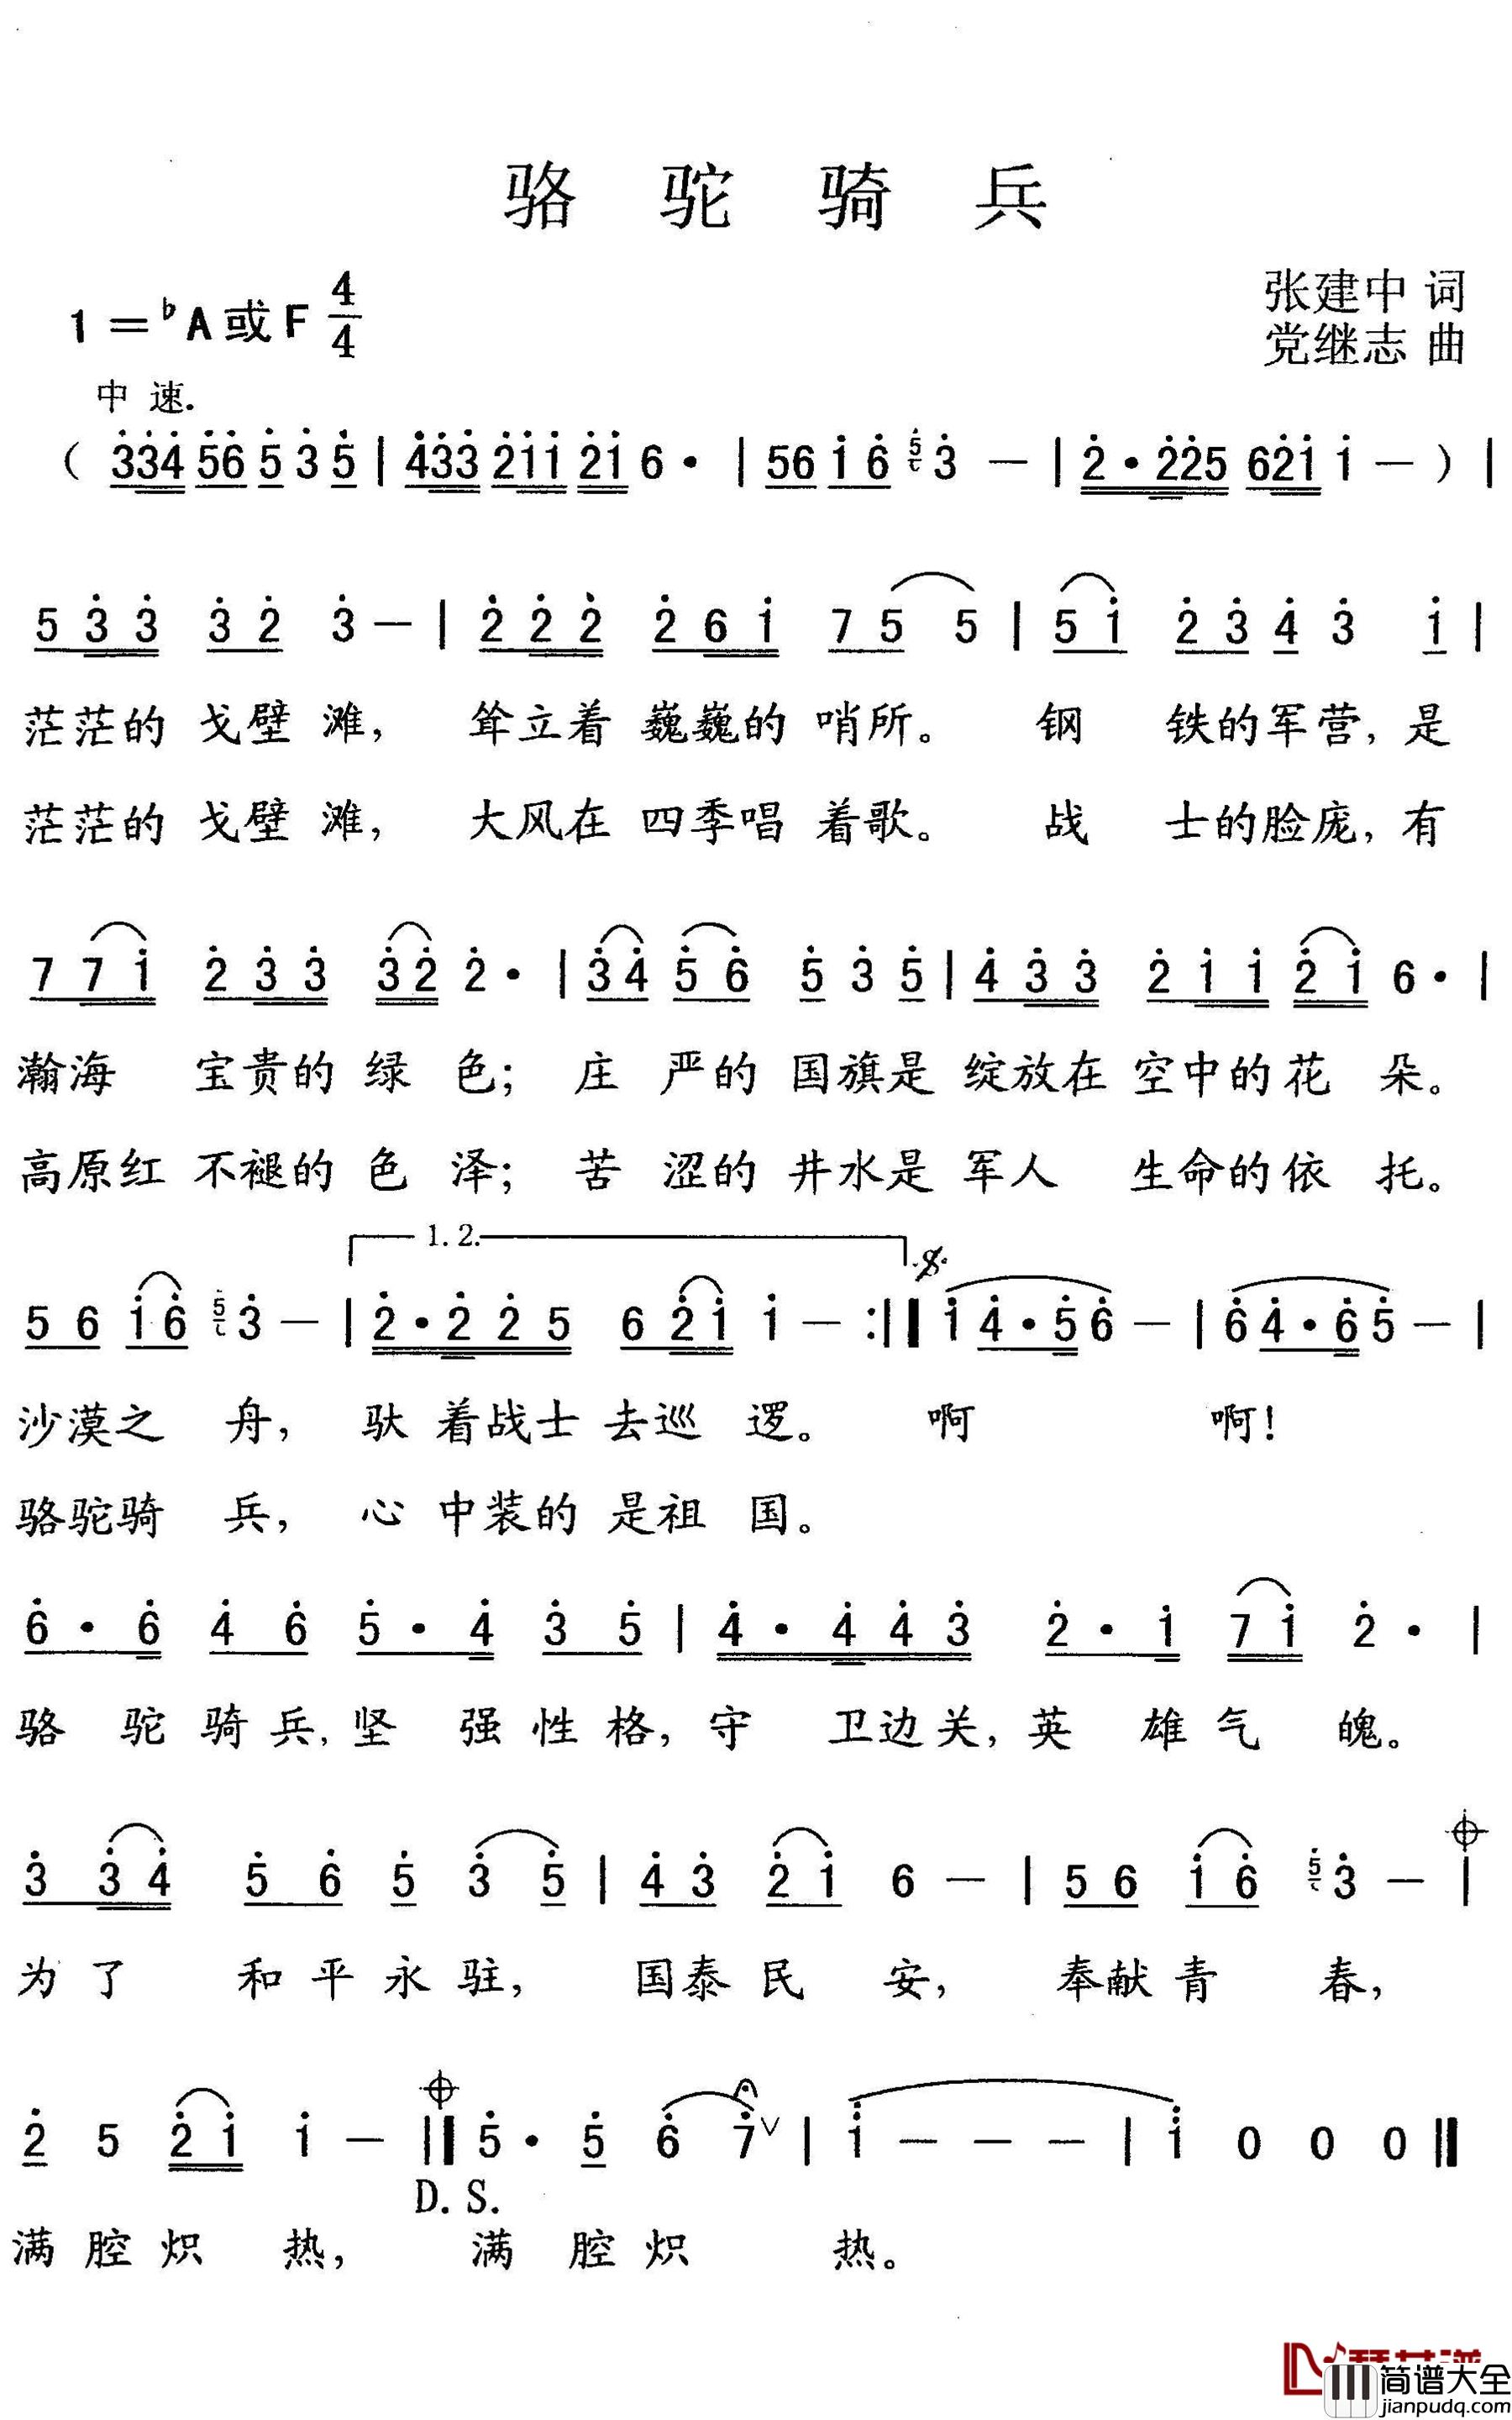 骆驼骑兵
1=♭A或F 4/4
张建中 词
党继志 曲
中速.
(334 56 5 3 5 | 433 211 21 6· | 56 16 5 3 — | 2·225 621 1 —) |
5 3 3 3 2 3 — | 2 2 2 2 6 1 7 5 5 | 5 1 2 3 4 3 1 |
茫茫的 戈壁 滩， 耸立着 巍巍的 哨所。 钢 铁的军营，是
茫茫的 戈壁 滩， 大风在 四季唱 着歌。 战 士的脸庞，有
7 7 1 2 3 3 3 2 2· | 3 4 5 6 5 3 5 | 4 3 3 2 1 1 2 1 6· |
瀚海 宝贵的 绿 色；庄 严的 国旗是 绽放在 空中的花 朵。
高原红 不褪的 色 泽；苦 涩的 井水是 军人 生命的依 托。
1. 2.
5 6 1 6 5 3 — | 2·2 2 5 6 2 1 1 — :‖ 1 4·5 6 — | 6 4·6 5 — |
沙漠之 舟， 驮 着战士 去巡 逻。 啊 啊！
骆驼骑 兵， 心 中装的 是祖 国。
6·6 4 6 5·4 3 5 | 4·4 4 3 2·1 7 1 2· |
骆 驼 骑 兵，坚 强 性 格，守 卫边关，英 雄 气 魄。
3 3 4 5 6 5 3 5 | 4 3 2 1 6 — | 5 6 1 6 5 3 — |
为了 和平永驻， 国泰民 安， 奉献青 春，
2 5 2 1 1 — ‖ 5·5 6 7 ∨ | 1 — — — | 1 0 0 0 ‖
D. S.
满腔炽 热， 满 腔炽 热。
简谱大全
jianpudq.com